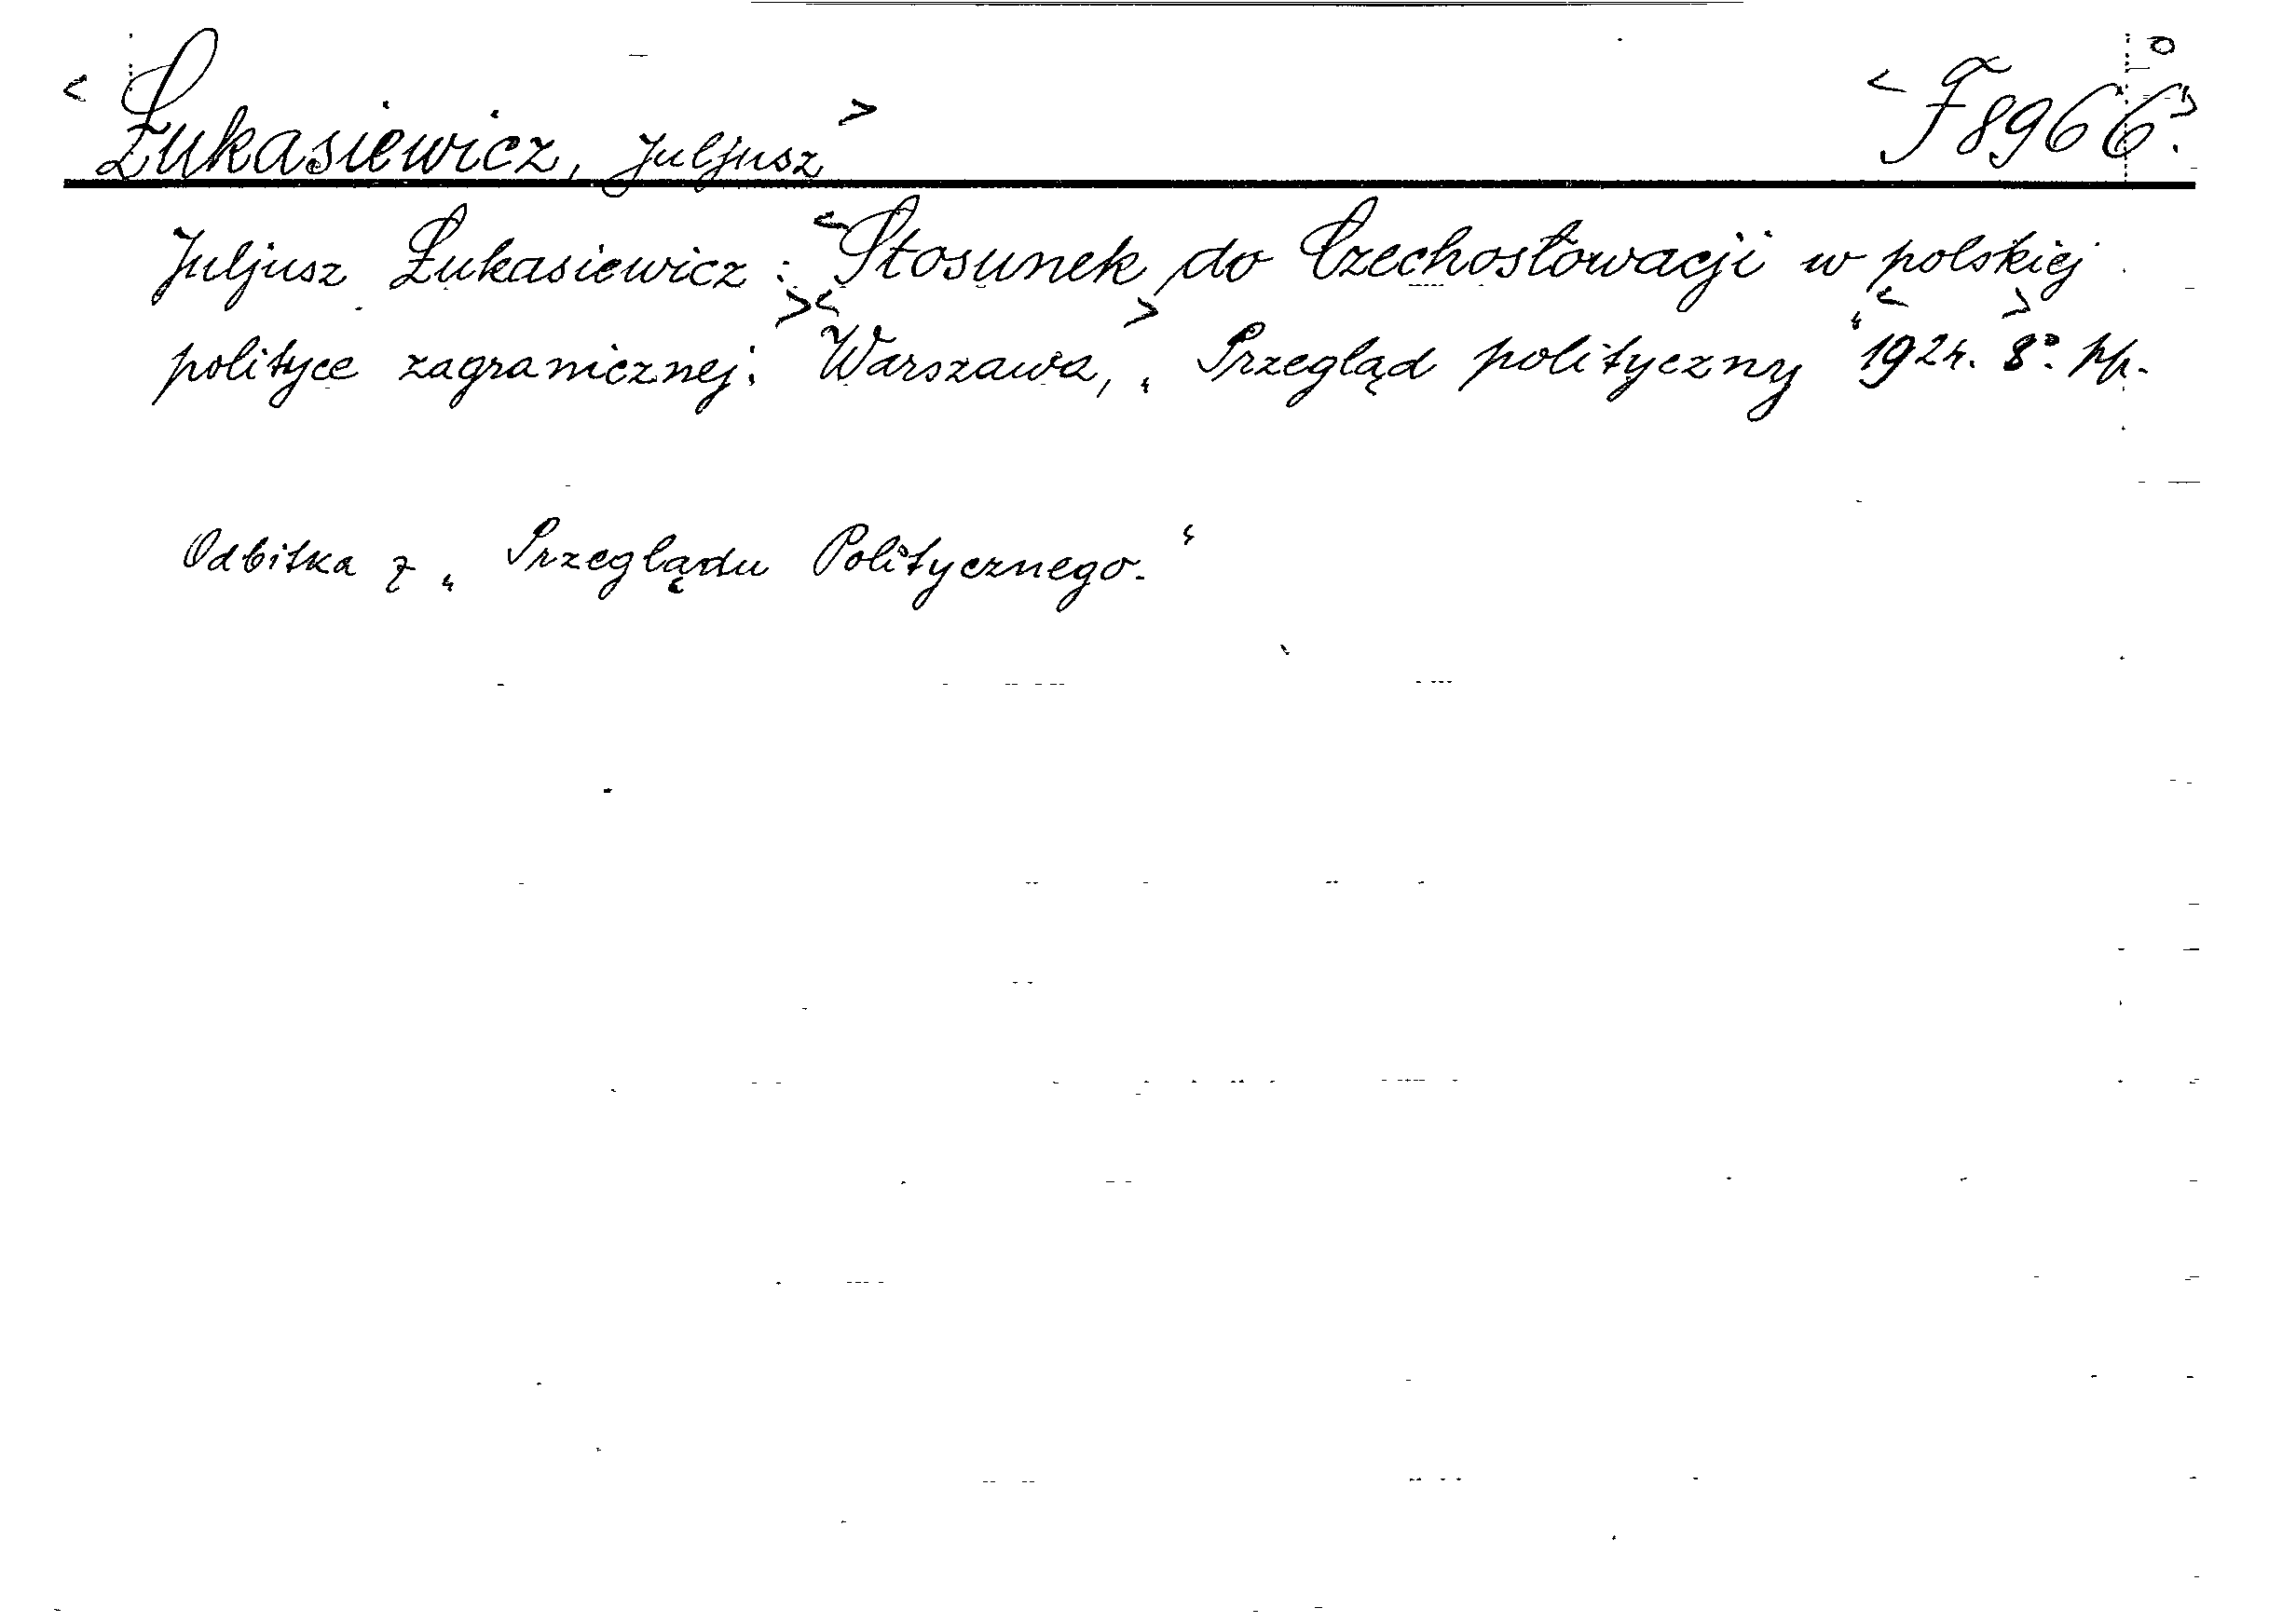 <Łukasiewicz, Juljusz> <F 8966.>
Juljusz Łukasiewicz: <Stosunek do Czechosłowacji w polskiej
polityce zagranicznej.> <Warszawa,> „Przegląd polityczny“ <1924.> 8°. pp.
Odbitka z „Przeglądu Politycznego.“